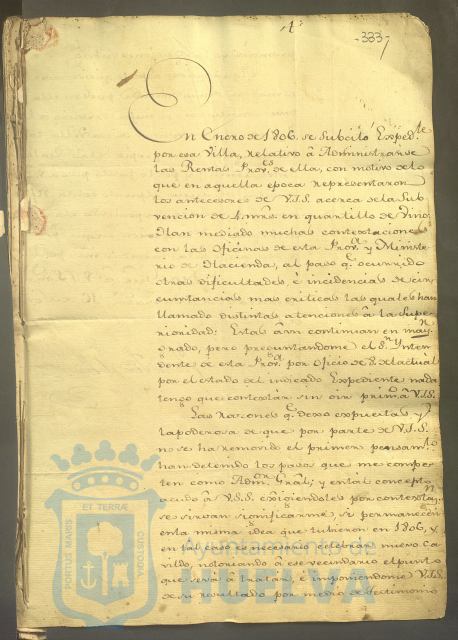 4.
333
En Enero de 1806. se subcitó Expedte
por esa Villa, relativo â Administrarse
las Rentas Provs de ella, con motivo de lo
que en aquella epoca representaron
los antecesores de V.S.S. acerca de la Sub
vencion de 4 mrs. en quartillo de Vino:
Han mediado muchas contextaciones
con las Oficinas de esta Prova y Ministe
rio de Hacienda, al paso q. ê ocurrido
otras dificultades, è incidencias de cir
cunstancias mas criticas las quales han
llamado distintas atenciones â la Supe
rioridad: Estas aun continuan en mayr
grado, pero preguntandome el Sr Ynten
dente de esta Prova por oficio de 8. del actual
por el estado del indicado Expediente nada
tengo que contextar sin oir primo â V.S.S.
Las razones q. dexo expuestas y
la poderosa de que por parte de V.S.S.
no se ha removido el primer pensamto
han detenido los pasos que me compe
ten como Admor Gral; y en tal concepto
acudo â V.S.S. exigiendoles por contextacn
se sirvan significarme, si permanecen
en la misma idea que tubieron en 1806, y
en tal caso es necesario celebrar nuevo Ca
vildo, notoriando â ese vecindario el punto
que se va â tratar, è imponiendome V.S.S.
de su resultado por medio de testimonio
PORTUS MARIS ET TERRAE CUSTODIA
Ayuntamiento de
HUELVA